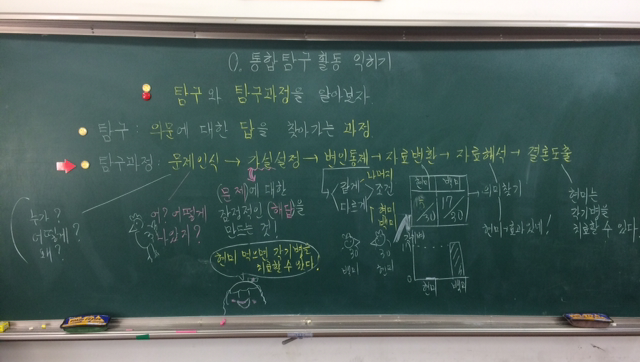 0. 통합 탐구 활동 익히기
탐구와 탐구과정을 알아보자
탐구 : 의문에 대한 답을 찾아가는 과정
탐구과정 : 문제인식 → 가설설정 → 변인통제 → 자료변환 → 자료해석 → 결론도출
누가?
어떻게?
왜?
어? 어떻게
나았지?
(문제)에 대한
잠정적인 (해답)을
만드는 것!
현미 먹으면 각기병을
치료할 수 있다!
같게
다르게
나머지
조건
현미
백미
30
백미
30
현미
현미 백미
30
30
0
현미 백미
의미찾기
현미→효과있네!
현미는
각기병을
치료할 수 있다.